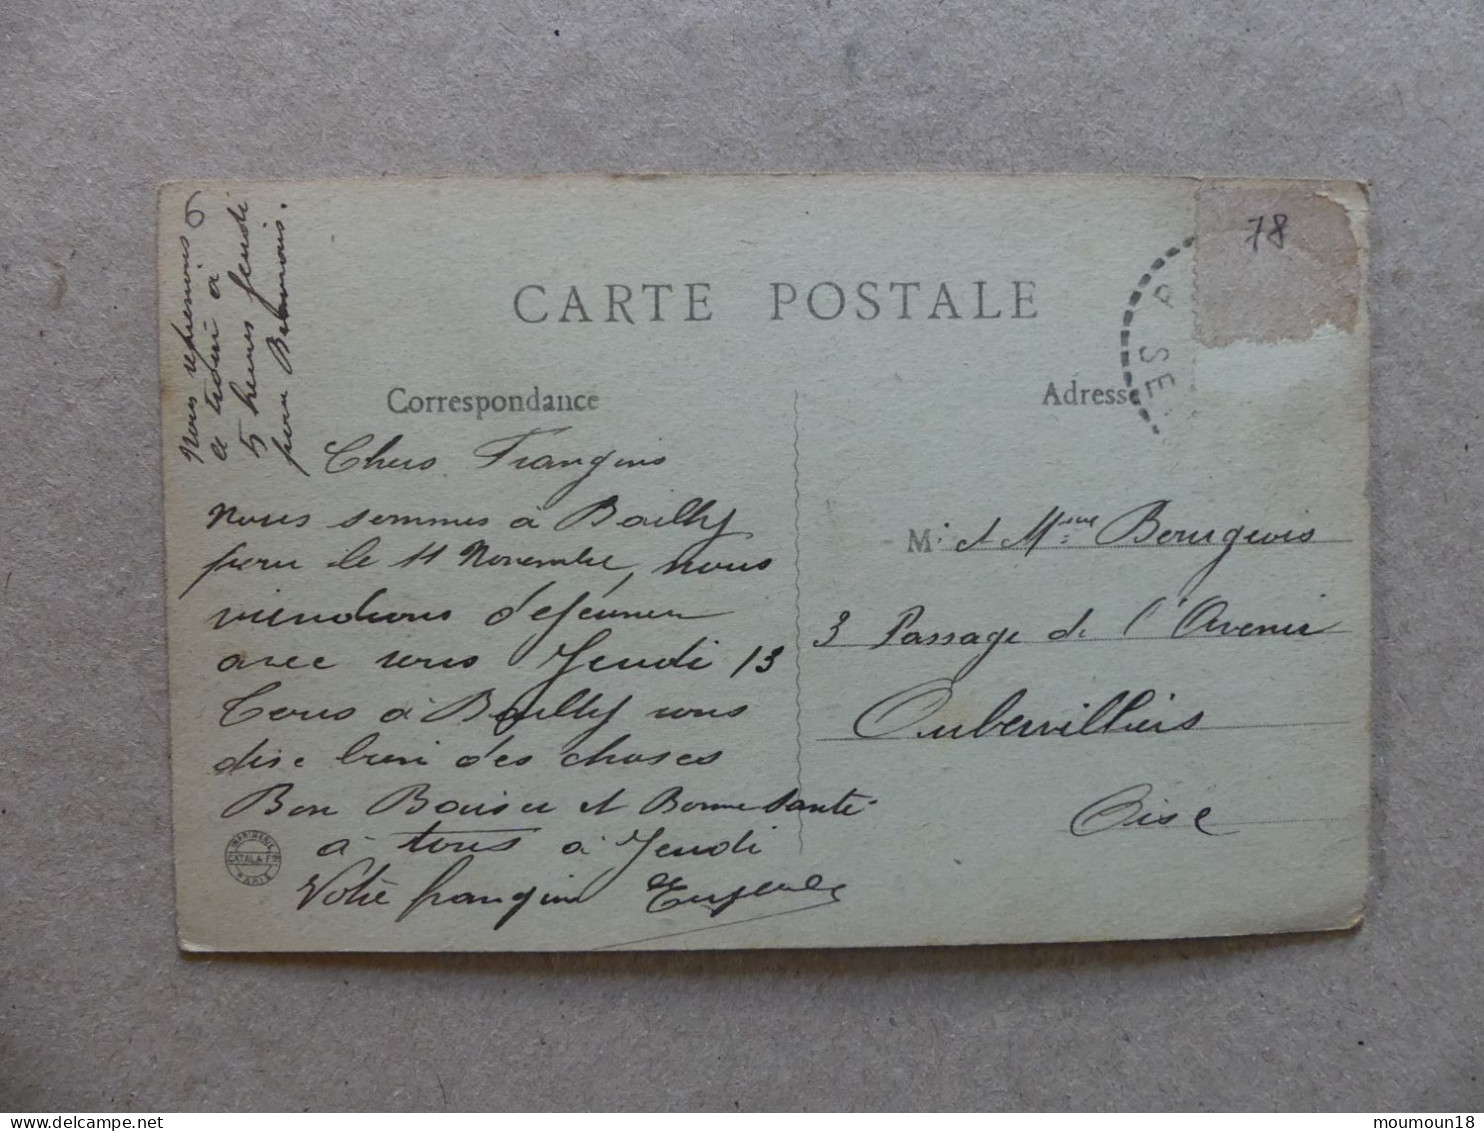 CARTE POSTALE
Correspondance
Adresse
78
SE
Chers Frangins
Nous sommes à Bailly
pour le 11 Novembre, nous
viendrons déjeuner
avec vous Jeudi 13
Tous à Bailly vous
dise bien des choses
Bon Baiser et Bonne Santé
à tous à Jeudi
Votre frangin Eugène
Nous reprenons
le train à
5 heures Jeudi
pour
M. et Mme Bourgeois
3 Passage de l'Avenir
Aubervilliers
Oise
IMPRIMERIE
CATALA FRES
PARIS
moumoun18